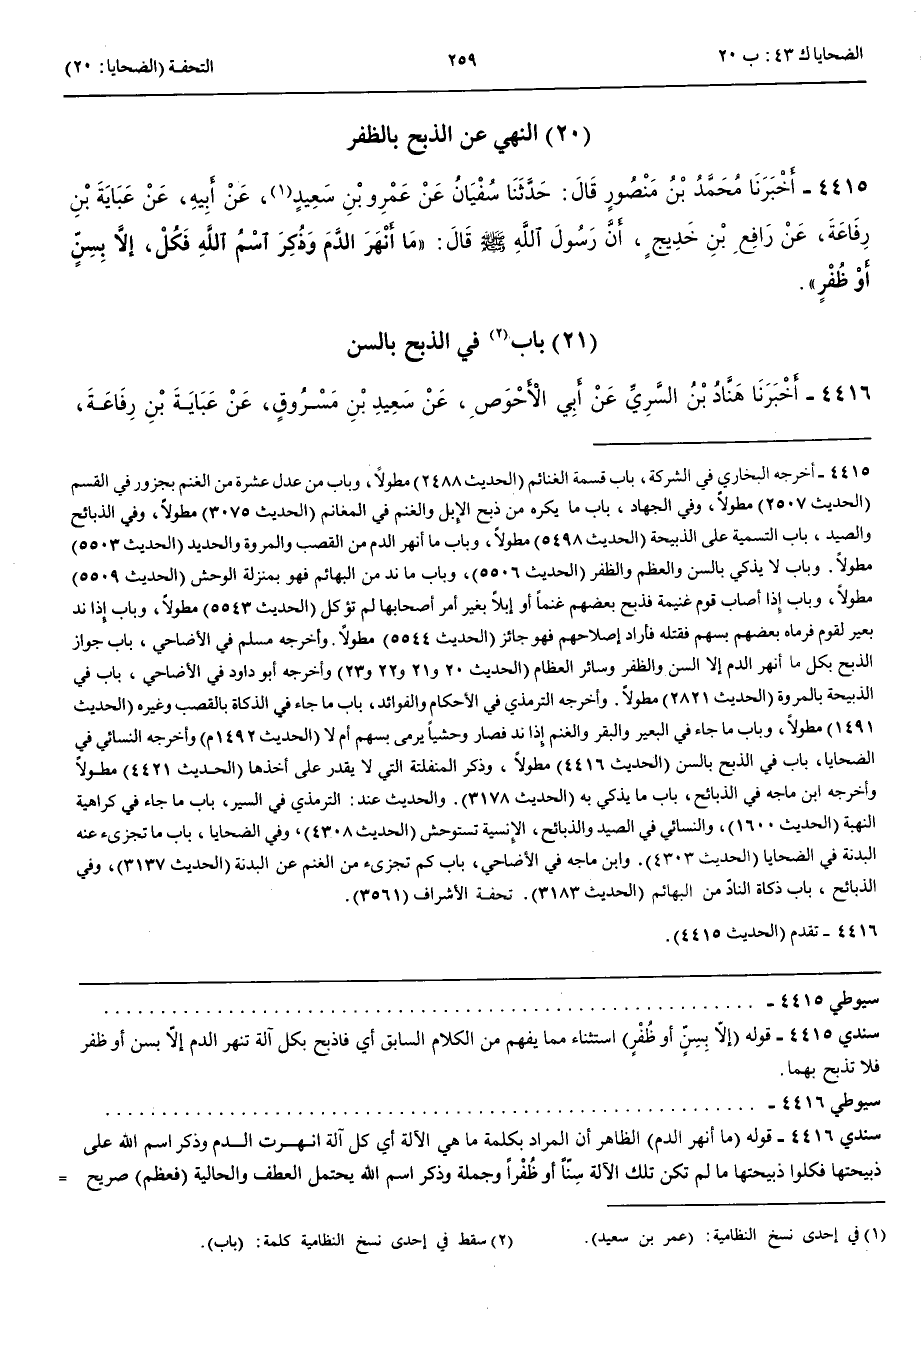 الضحايا ك ٤٣: ب ٢٠
٢٥٩
التحفة (الضحايا: ٢٠)
(٢٠) النهي عن الذبح بالظفر
٤٤١٥ - أَخْبَرَنَا مُحَمَّدُ بْنُ مَنْصُورٍ قَالَ: حَدَّثَنَا سُفْيَانُ عَنْ عَمْرِو بْنِ سَعِيدٍ(١)، عَنْ أَبِيهِ، عَنْ عَبَايَةَ بْنِ
رِفَاعَةَ، عَنْ رَافِعِ بْنِ خَدِيجٍ، أَنَّ رَسُولَ اللَّهِ ﷺ قَالَ: «مَا أَنْهَرَ الدَّمَ وَذُكِرَ اسْمُ اللَّهِ فَكُلْ، إِلَّا بِسِنٍّ
أَوْ ظُفْرٍ».
(٢١) باب(٢) في الذبح بالسن
٤٤١٦ - أَخْبَرَنَا هَنَّادُ بْنُ السَّرِيِّ عَنْ أَبِي الْأَحْوَصِ، عَنْ سَعِيدِ بْنِ مَسْرُوقٍ، عَنْ عَبَايَةَ بْنِ رِفَاعَةَ،
٤٤١٥ - أخرجه البخاري في الشركة، باب قسمة الغنائم (الحديث ٢٤٨٨) مطولاً، وباب من عدل عشرة من الغنم بجزور في القسم
(الحديث ٢٥٠٧) مطولاً، وفي الجهاد، باب ما يكره من ذبح الإبل والغنم في المغانم (الحديث ٣٠٧٥) مطولاً، وفي الذبائح
والصيد، باب التسمية على الذبيحة (الحديث ٥٤٩٨) مطولاً، وباب ما أنهر الدم من القصب والمروة والحديد (الحديث ٥٥٠٣)
مطولاً. وباب لا يذكي بالسن والعظم والظفر (الحديث ٥٥٠٦)، وباب ما ند من البهائم فهو بمنزلة الوحش (الحديث ٥٥٠٩)
مطولاً، وباب إذا أصاب قوم غنيمة فذبح بعضهم غنماً أو إبلاً بغير أمر أصحابها لم تؤكل (الحديث ٥٥٤٣) مطولاً، وباب إذا ند
بعير لقوم فرماه بعضهم بسهم فقتله فأراد إصلاحهم فهو جائز (الحديث ٥٥٤٤) مطولاً. وأخرجه مسلم في الأضاحي، باب جواز
الذبح بكل ما أنهر الدم إلا السن والظفر وسائر العظام (الحديث ٢٠ و٢١ و٢٢ و٢٣) وأخرجه أبو داود في الأضاحي، باب في
الذبيحة بالمروة (الحديث ٢٨٢١) مطولاً. وأخرجه الترمذي في الأحكام والفوائد، باب ما جاء في الذكاة بالقصب وغيره (الحديث
١٤٩١) مطولاً، وباب ما جاء في البعير والبقر والغنم إذا ند فصار وحشياً يرمى بسهم أم لا (الحديث ١٤٩٢م) وأخرجه النسائي في
الضحايا، باب في الذبح بالسن (الحديث ٤٤١٦) مطولاً، وذكر المنفلتة التي لا يقدر على أخذها (الحديث ٤٤٢١) مطولاً
وأخرجه ابن ماجه في الذبائح، باب ما يذكي به (الحديث ٣١٧٨). والحديث عند: الترمذي في السير، باب ما جاء في كراهية
النهبة (الحديث ١٦٠٠)، والنسائي في الصيد والذبائح، الإنسية تستوحش (الحديث ٤٣٠٨)، وفي الضحايا، باب ما تجزىء عنه
البدنة في الضحايا (الحديث ٤٣٠٣). وابن ماجه في الأضاحي، باب كم تجزىء من الغنم عن البدنة (الحديث ٣١٣٧)، وفي
الذبائح، باب ذكاة النادّ من البهائم (الحديث ٣١٨٣). تحفة الأشراف (٣٥٦١).
٤٤١٦ - تقدم (الحديث ٤٤١٥).
سيوطي ٤٤١٥ - ..........
سندي ٤٤١٥ - قوله (إلّا بِسِنّ أو ظُفْرٍ) استثناء مما يفهم من الكلام السابق أي فاذبح بكل آلة تنهر الدم إلّا بسن أو ظفر
فلا تذبح بهما.
سيوطي ٤٤١٦ - ..........
سندي ٤٤١٦ - قوله (ما أنهر الدم) الظاهر أن المراد بكلمة ما هي الآلة أي كل آلة انهرت الدم وذكر اسم الله على
ذبيحتها فكلوا ذبيحتها ما لم تكن تلك الآلة سِنّاً أو ظُفْراً وجملة وذكر اسم الله يحتمل العطف والحالية (فعظم) صريح =
(١) في إحدى نسخ النظامية: (عمر بن سعيد).
(٢) سقط في إحدى نسخ النظامية كلمة: (باب).